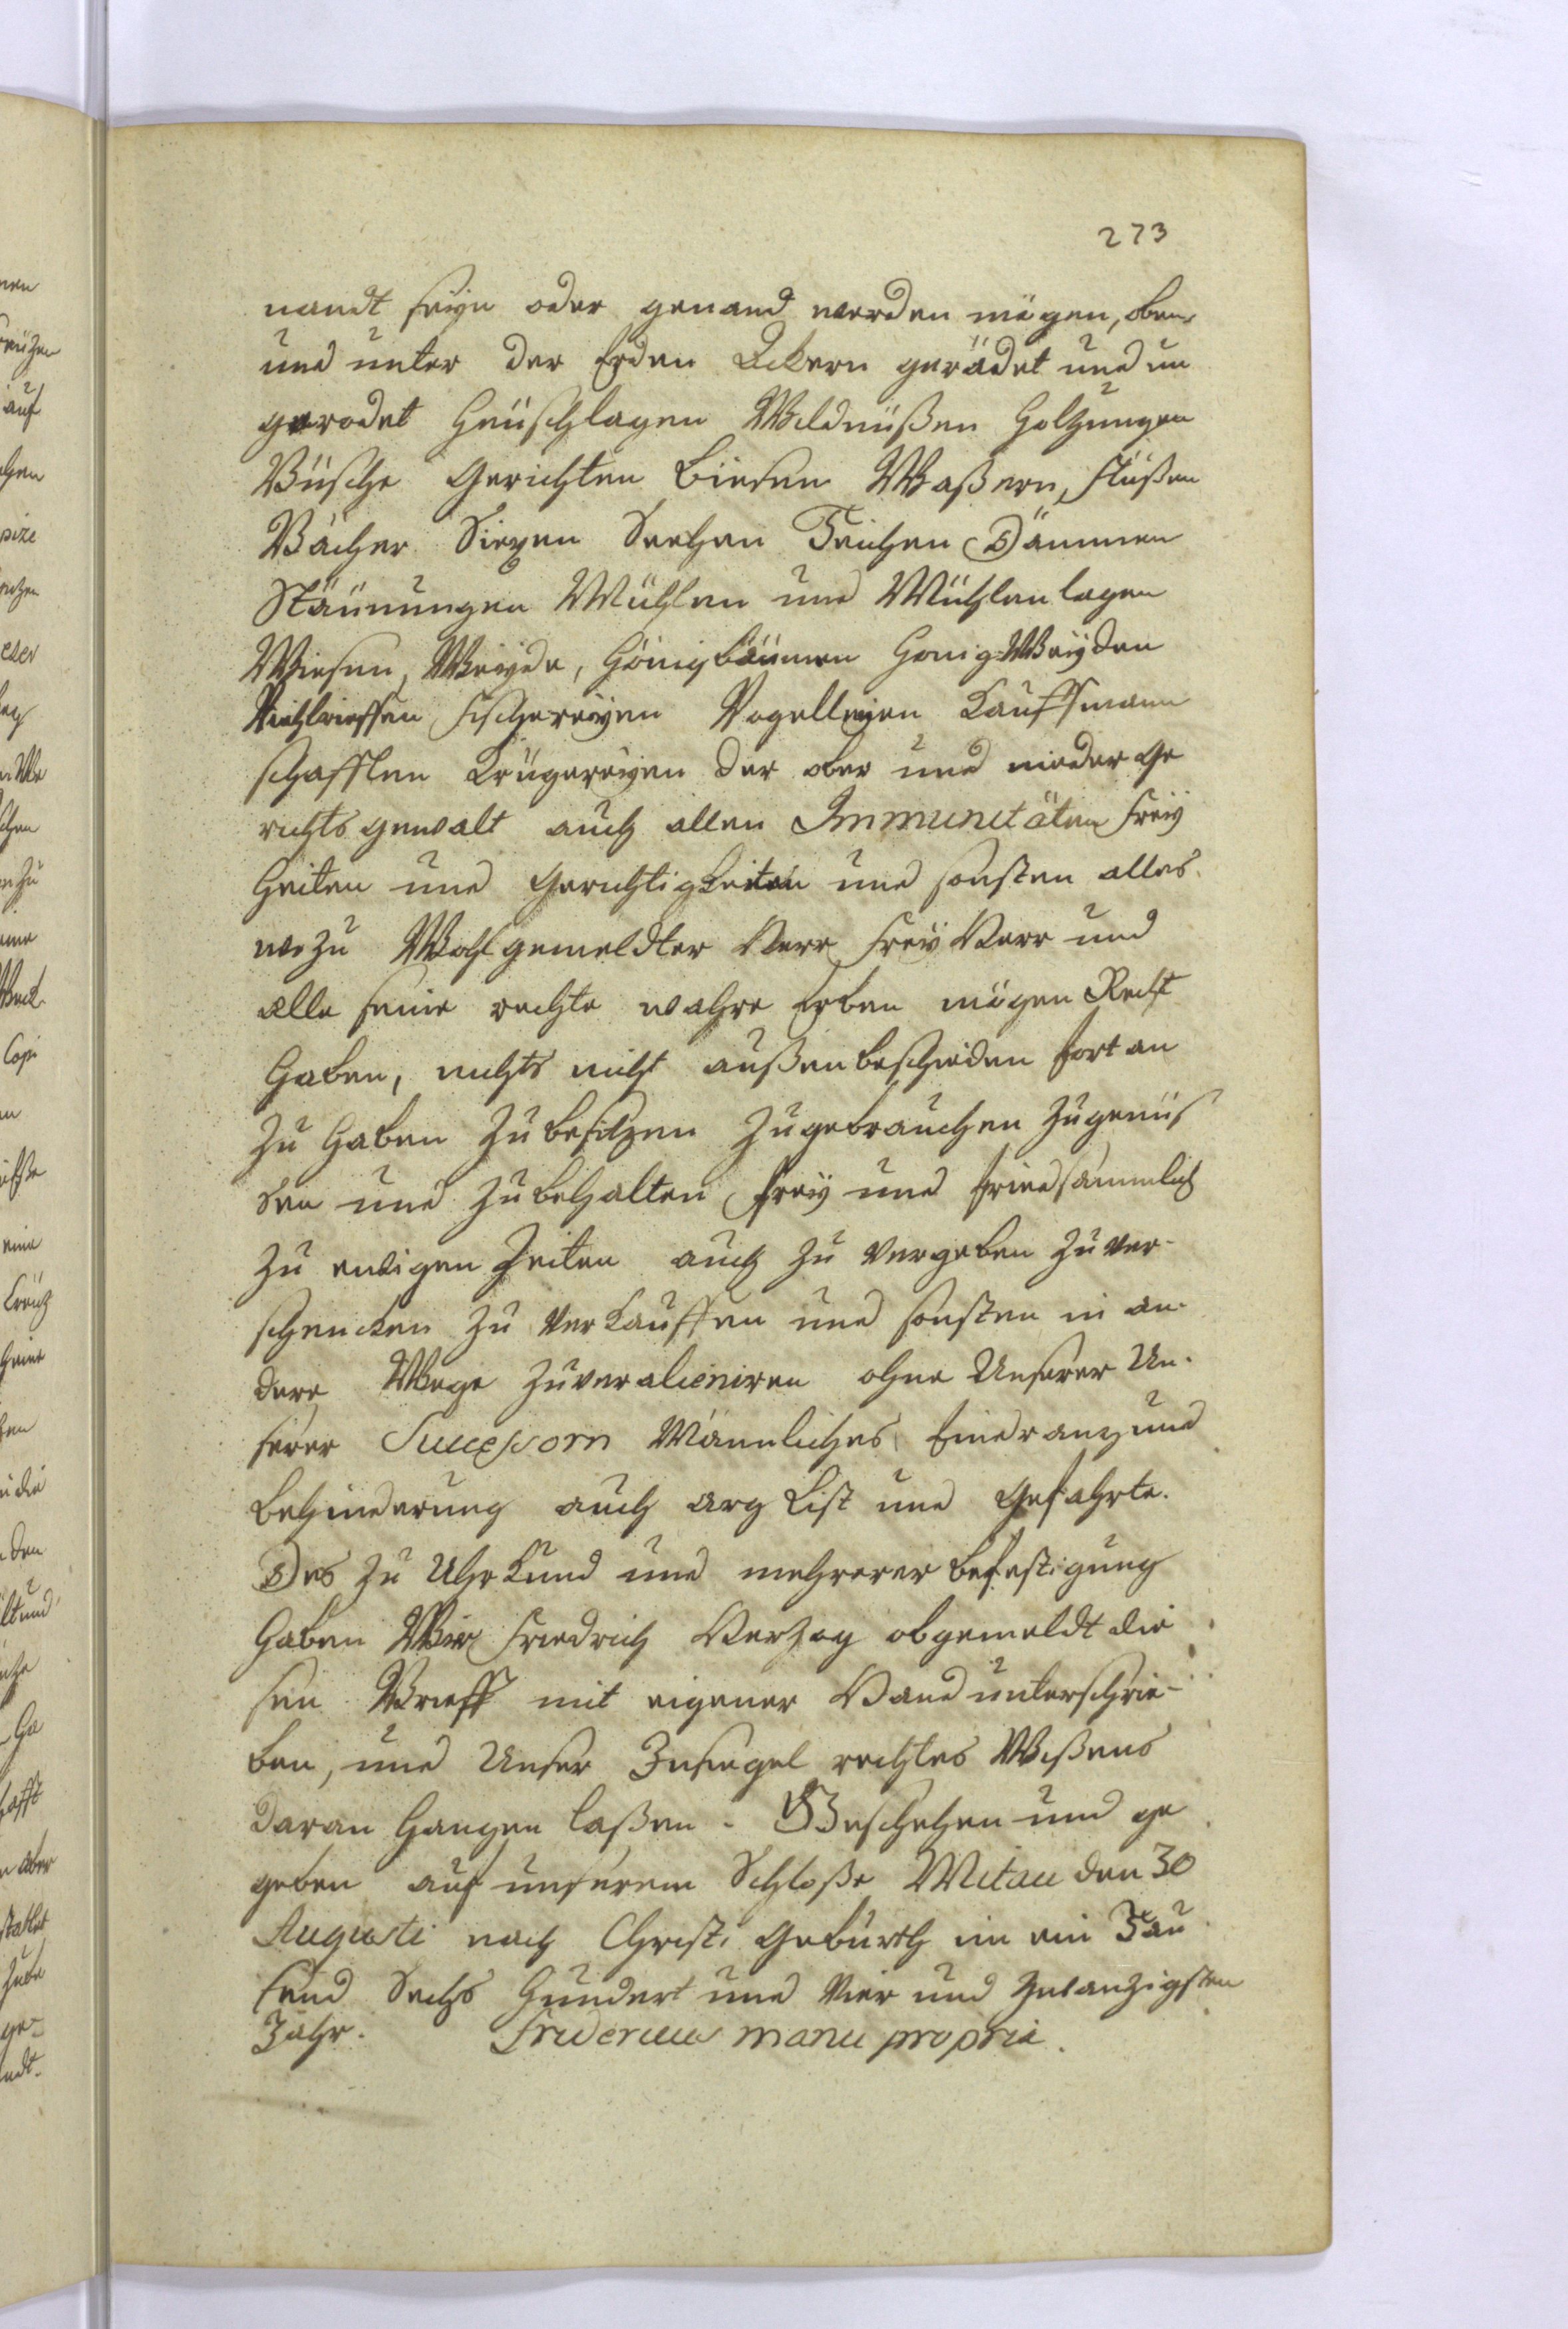 273
nandt seyn oder genand werden mögen, oben
und unter der Erden Äckern gerödet und un
gerodet Heüschlagen Wildnüßen Holtzungen
Büsche Gerichten Birsen Waßern, flüßen
Bächer Siepen Seehen Teichen Dämmen
Stäuungen Mühlen und Mühlenlagen
Wiesen, Weyde, Hönigbäumen Honig-Weyden
Viehtrifften fischereyen Vogelleyen Kauffmann
schafften Krügereyen der ober und nieder Ge
richtsgewalt auch allen Immunitäten frey
heiten und Gerechtigkeiten und sonsten alles
wozu Wohlgemeldter Herr frey Herr und
alle seine rechte wahre Erben mögen Recht
haben, nichts nicht außenbescheiden fortan
zu haben zubesitzen zugebrauchen zugenüs
sen und zubehalten frey und friedsammlich
zu ewigen Zeiten auch zu vergeben zu ver-
schencken zu verkauffen und sonsten in an-
dere Wege zuveralieniren ohne Unserer Un-
serer Successorn Männliches Eindrang und
behinderung auch arg List und Gefahrte.
Des zu Uhrkund und mehrerer befestigung
haben Wir Friedrich Herzog obgemeldt die
sen Brieff mit eigener Hand unterschrie-
ben, und Unser Insiegel rechtes Wißens
daran hangen laßen. Geschehen und ge
geben auf unserem Schloße Mitau den 30
Augusti nach Christi Gebürth im ein Tau
send Sechs Hundert und Vier und Zwanzigsten
Jahr. Fridericus manu propria.